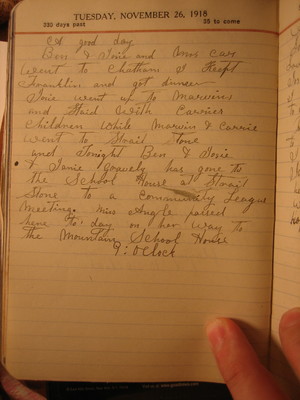 TUESDAY, NOVEMBER 26, 1918
330 days past 35 to come
A good day
Ben & Josie and Mrs Car
went to Chatham I Kept
Franklin and got dinner
Josie went up to Marvins
and Staid With Carries
Children While Marvin & Carrie
went to Strait Stone
and Tonight Ben & Josie
& Janie Gravely has gone to
the School House at Strait
Stone to a Community League
Meeting. Miss Angle passed
here to day on her way to
the Mountain School House
9: O Clock